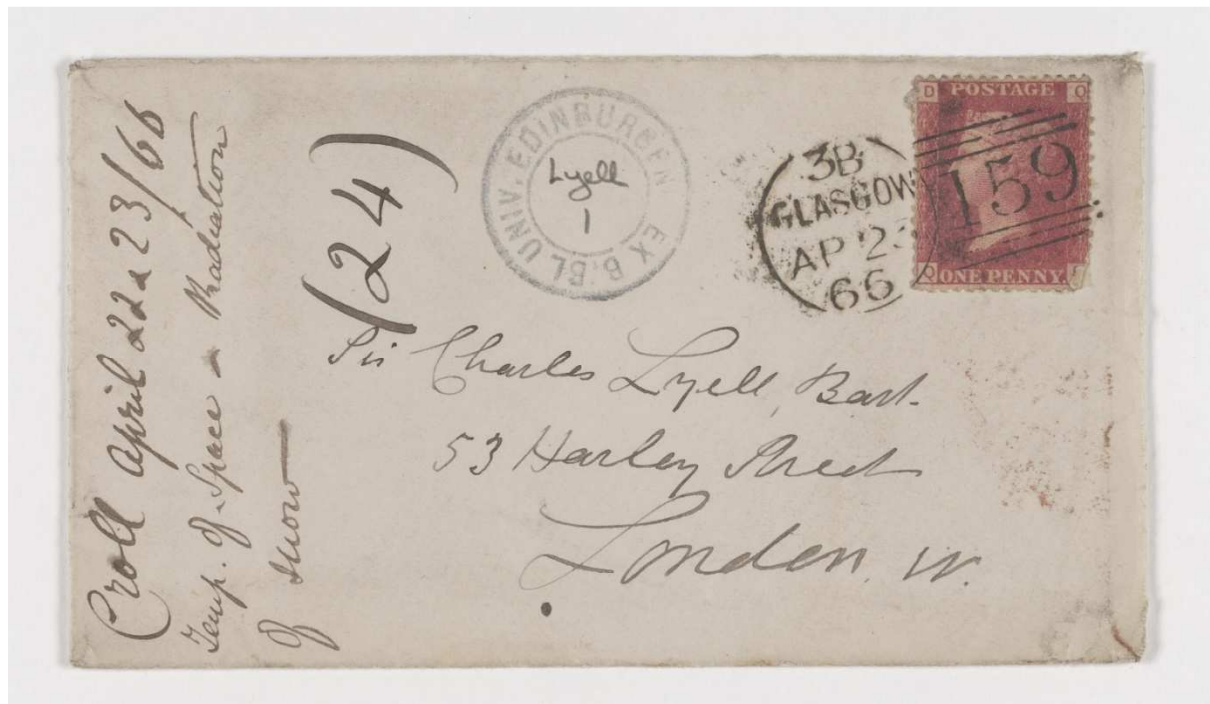 Croll April 22 & 23/66
Temp. of Space – Radiation
of snow —
(24)
UNIV. EDINBURGEN EX B:BL
Lyell
1
3B
GLASGOW
AP 2
66
159
D POSTAGE O
ONE PENNY.
Sir Charles Lyell, Bart.
53 Harley Street
London. W.